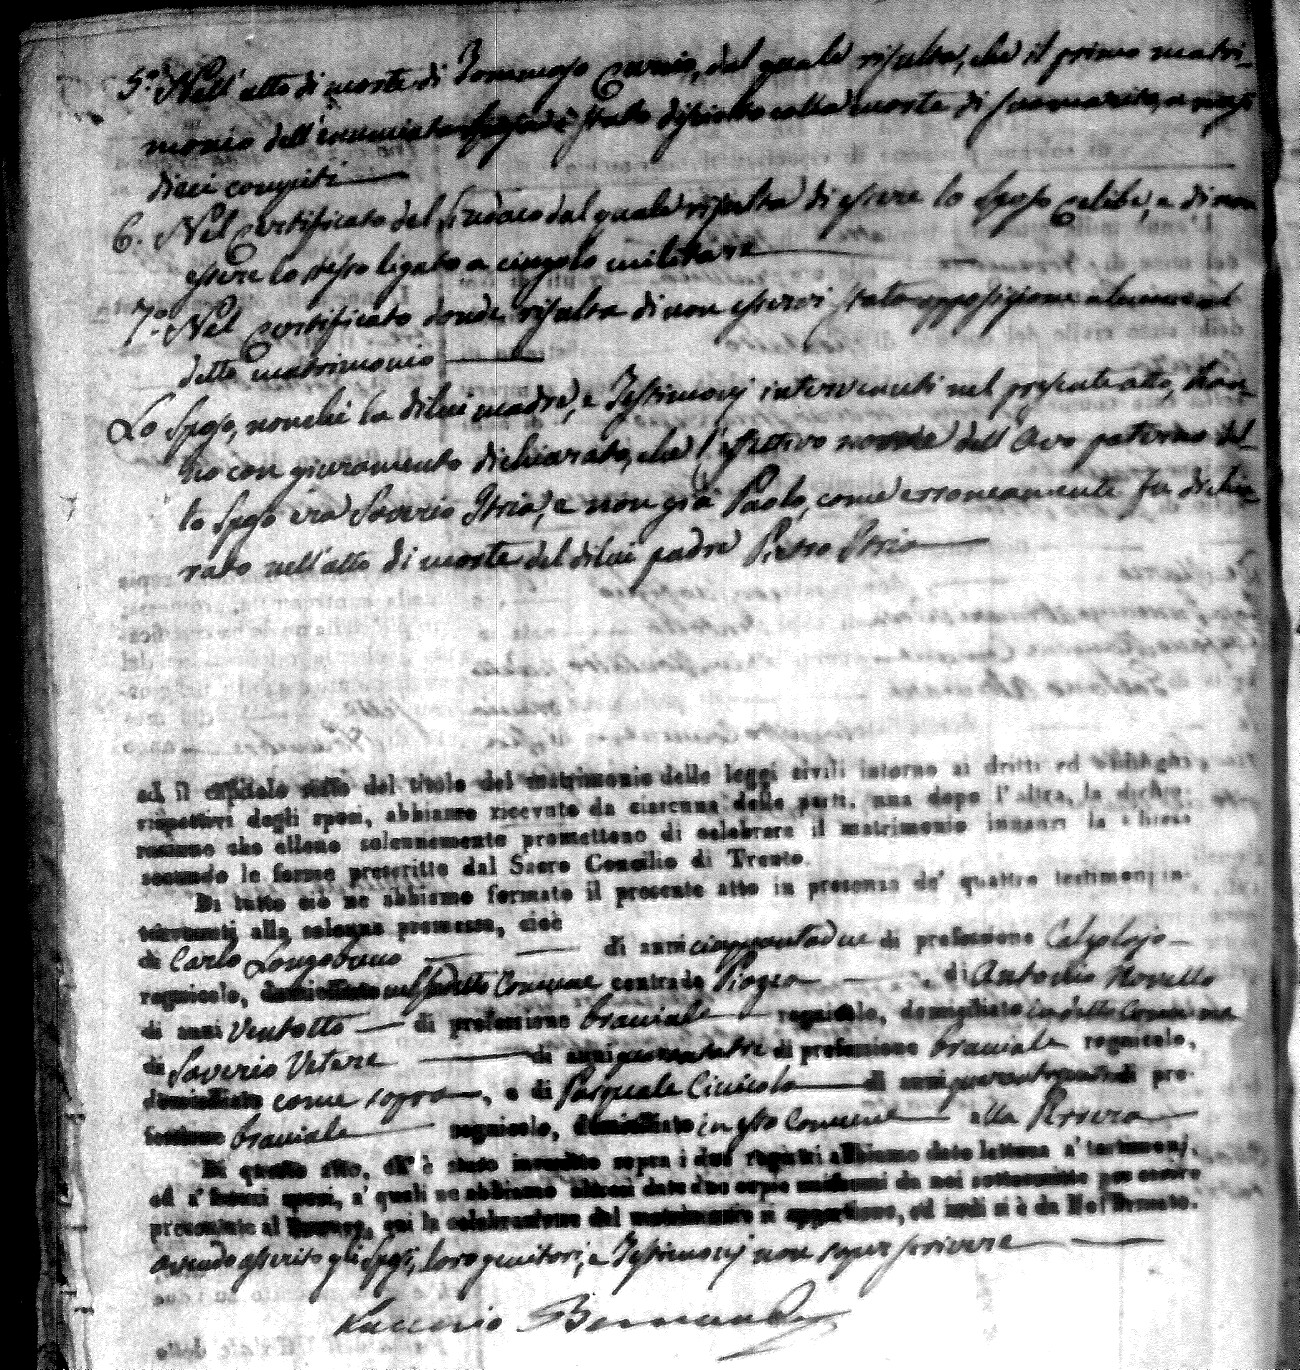 5.° Nell'atto di morte di Tommaso Curcio, dal quale risulta, che il primo matri-
monio dell'enunciata sposa è stato disciolto colla morte di suo marito, a mesi
dieci compiti
6. Nel certificato del Sindaco dal quale risulta di essere lo sposo celibe, e di non
essere lo stesso ligato a cingolo militare
7.° Nel certificato donde risulta di non esservi stata opposizione alcuna al
detto matrimonio
Lo sposo, nonché la dilui madre, e Testimonj intervenuti nel presente atto, han-
no con giuramento dichiarato, che l'effettivo nome dell'avo paterno del-
lo sposo era Saverio Iiria, e non già Paolo, come erroneamente fu dichia-
rato nell'atto di morte del dilui padre Pietro
ed il capitolo sesto del titolo del matrimonio delle leggi civili intorno ai dritti ed obblighi
rispettivi degli sposi, abbiamo ricevuto da ciascuna delle parti, una dopo l'altra, la dichia-
razione che elleno solennemente promettono di celebrare il matrimonio innanzi la chiesa
secondo le forme prescritte dal Sacro Concilio di Trento.
Di tutto ciò ne abbiamo formato il presente atto in presenza de' quattro testimonj in-
tervenuti alla solenne promessa, cioè
di Carlo Longobucco di anni cinquantadue di professione Calzolajo
regnicolo, domiciliato nel sudetto Comune contrada di Antonio Novello
di anni ventotto di professione bracciale regnicolo, domiciliato in detto Comune
di Saverio Vetere di anni quarantatre di professione bracciale regnicolo,
domiciliato come sopra, e di Pasquale di anni di pro-
fessione bracciale regnicolo, domiciliato in questo Comune alla
Di questo atto, ch'è stato inscritto sopra i due registri abbiamo dato lettura a' testimonj,
ed a' futuri sposi, a' quali ne abbiamo altresì date due copie uniformi da noi sottoscritte per essere
presentate al Parroco, cui la celebrazione del matrimonio si appartiene, ed indi si è da Noi firmato.
avendo asserito gli sposi, loro genitori, e Testimonj non saper scrivere